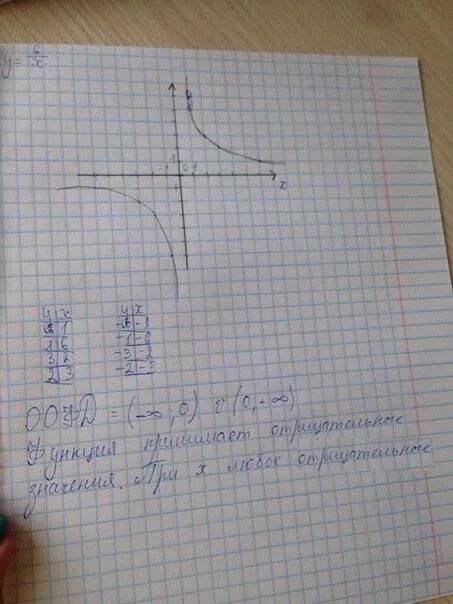 y = 6/x
y
1
-1 0 1
x
y x y x
6 1 -6 -1
1 6 -1 -6
3 2 -3 -2
2 3 -2 -3
ООФД = (-∞; 0) v (0, +∞)
Функция принимает отрицательные
значения. При x любое отрицательные